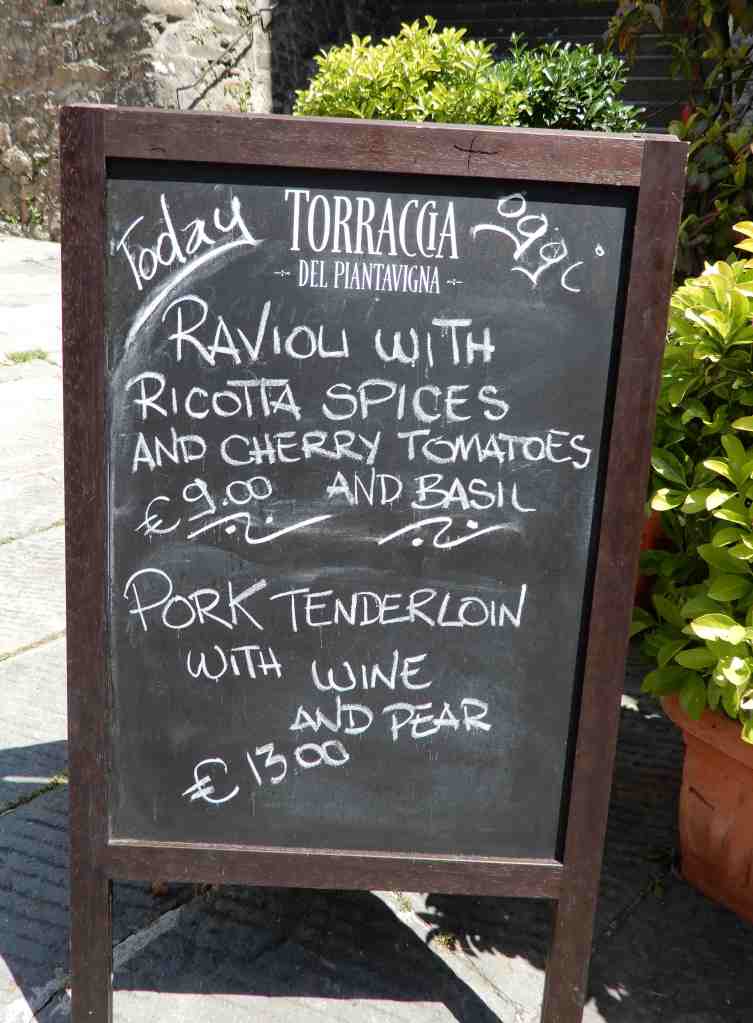 Today TORRACCiA oggi
DEL PIANTAVIGNA
RAVIOLI WITH
RICOTTA SPICES
AND CHERRY TOMATOES
€ 9.00 AND BASIL
PORK TENDERLOIN
WITH WINE
AND PEAR
€ 13 00